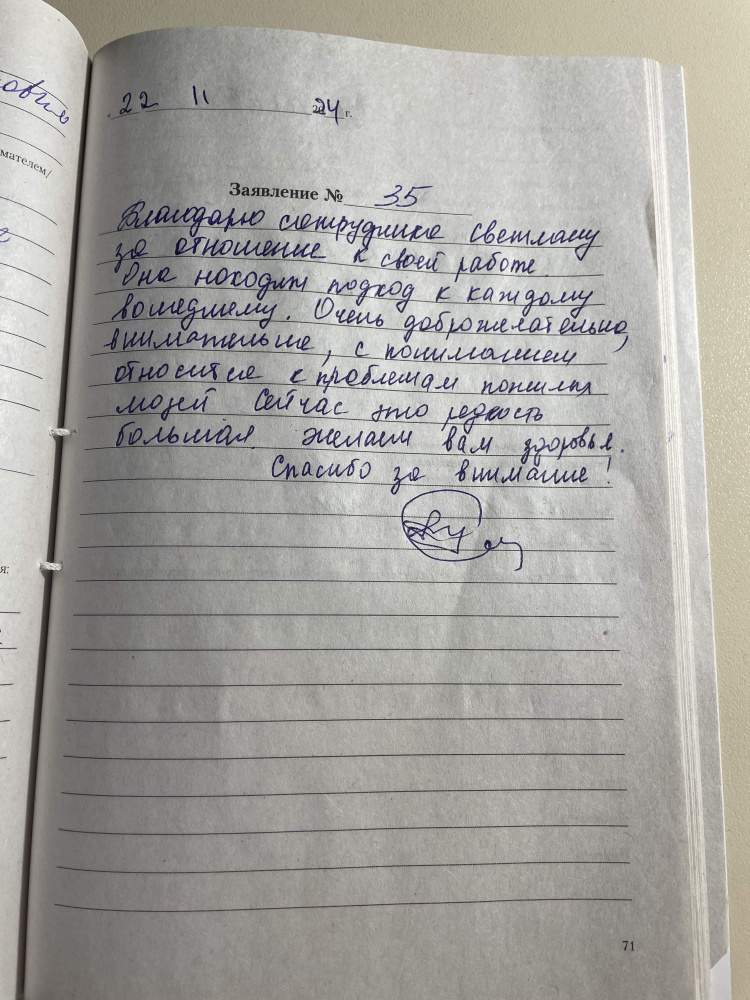 ович
мателем/
я:
22 11 2024 г.
Заявление № 35
Благодарю сотрудника Светлану
за отношение к своей работе.
Она находит подход к каждому
вошедшему. Очень доброжелательно,
внимательно, с пониманием
относится к проблемам пожилых
людей Сейчас это редкость
большая. Желаем вам здоровья.
Спасибо за внимание!
71